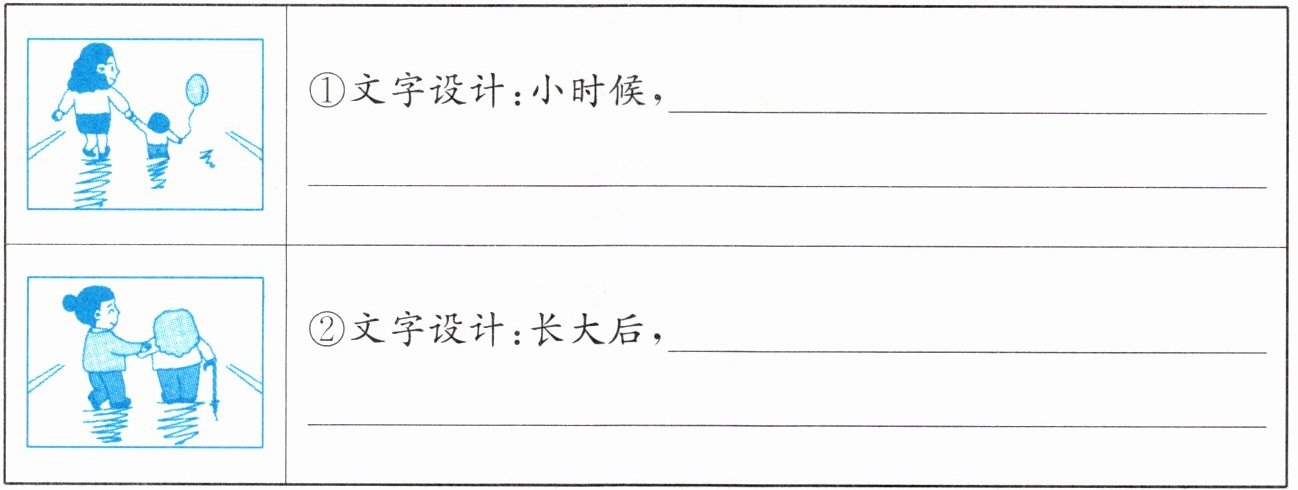 ①文字设计:小时候,
②文字设计:长大后,